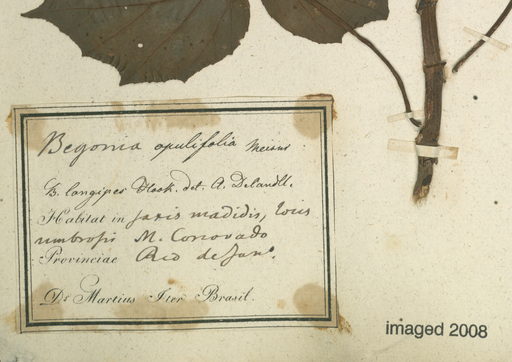 Begonia opulifolia
B. longipes Hook. det. A. DeCandlle.
Habitat in saxis madidis, locis
umbrosis M. Corcovado
Provinciae Rio de Jano.
Dr Martius Iter Brasil.
imaged 2008